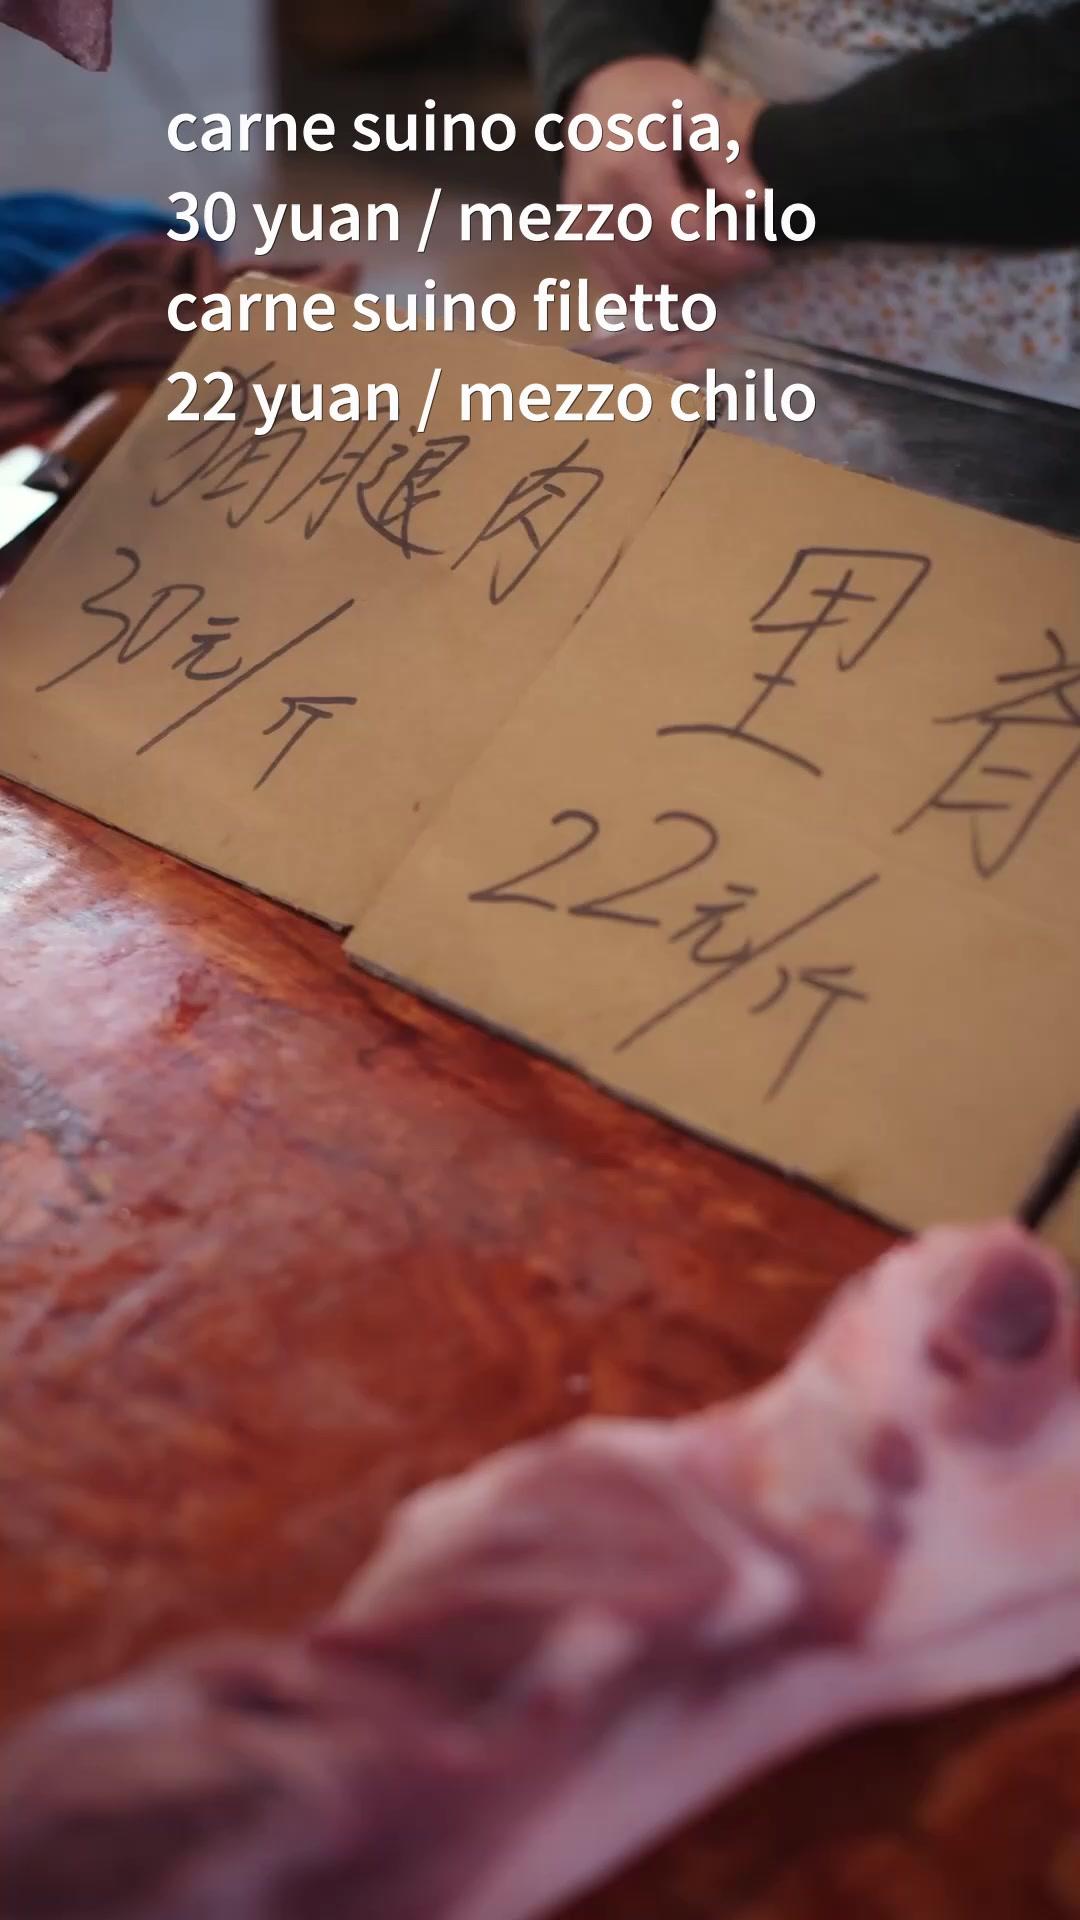 carne suino coscia,
30 yuan / mezzo chilo
carne suino filetto
22 yuan / mezzo chilo
猪腿肉
30元/斤
里脊
22元/斤